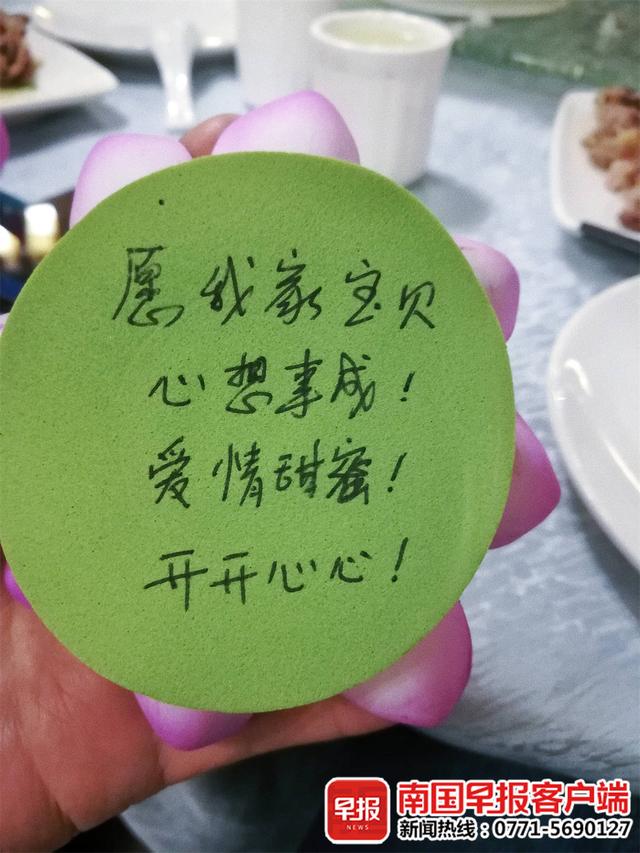 愿我家宝贝
心想事成！
爱情甜蜜！
开开心心！
早报
NEWS
南国早报客户端
新闻热线：0771-5690127